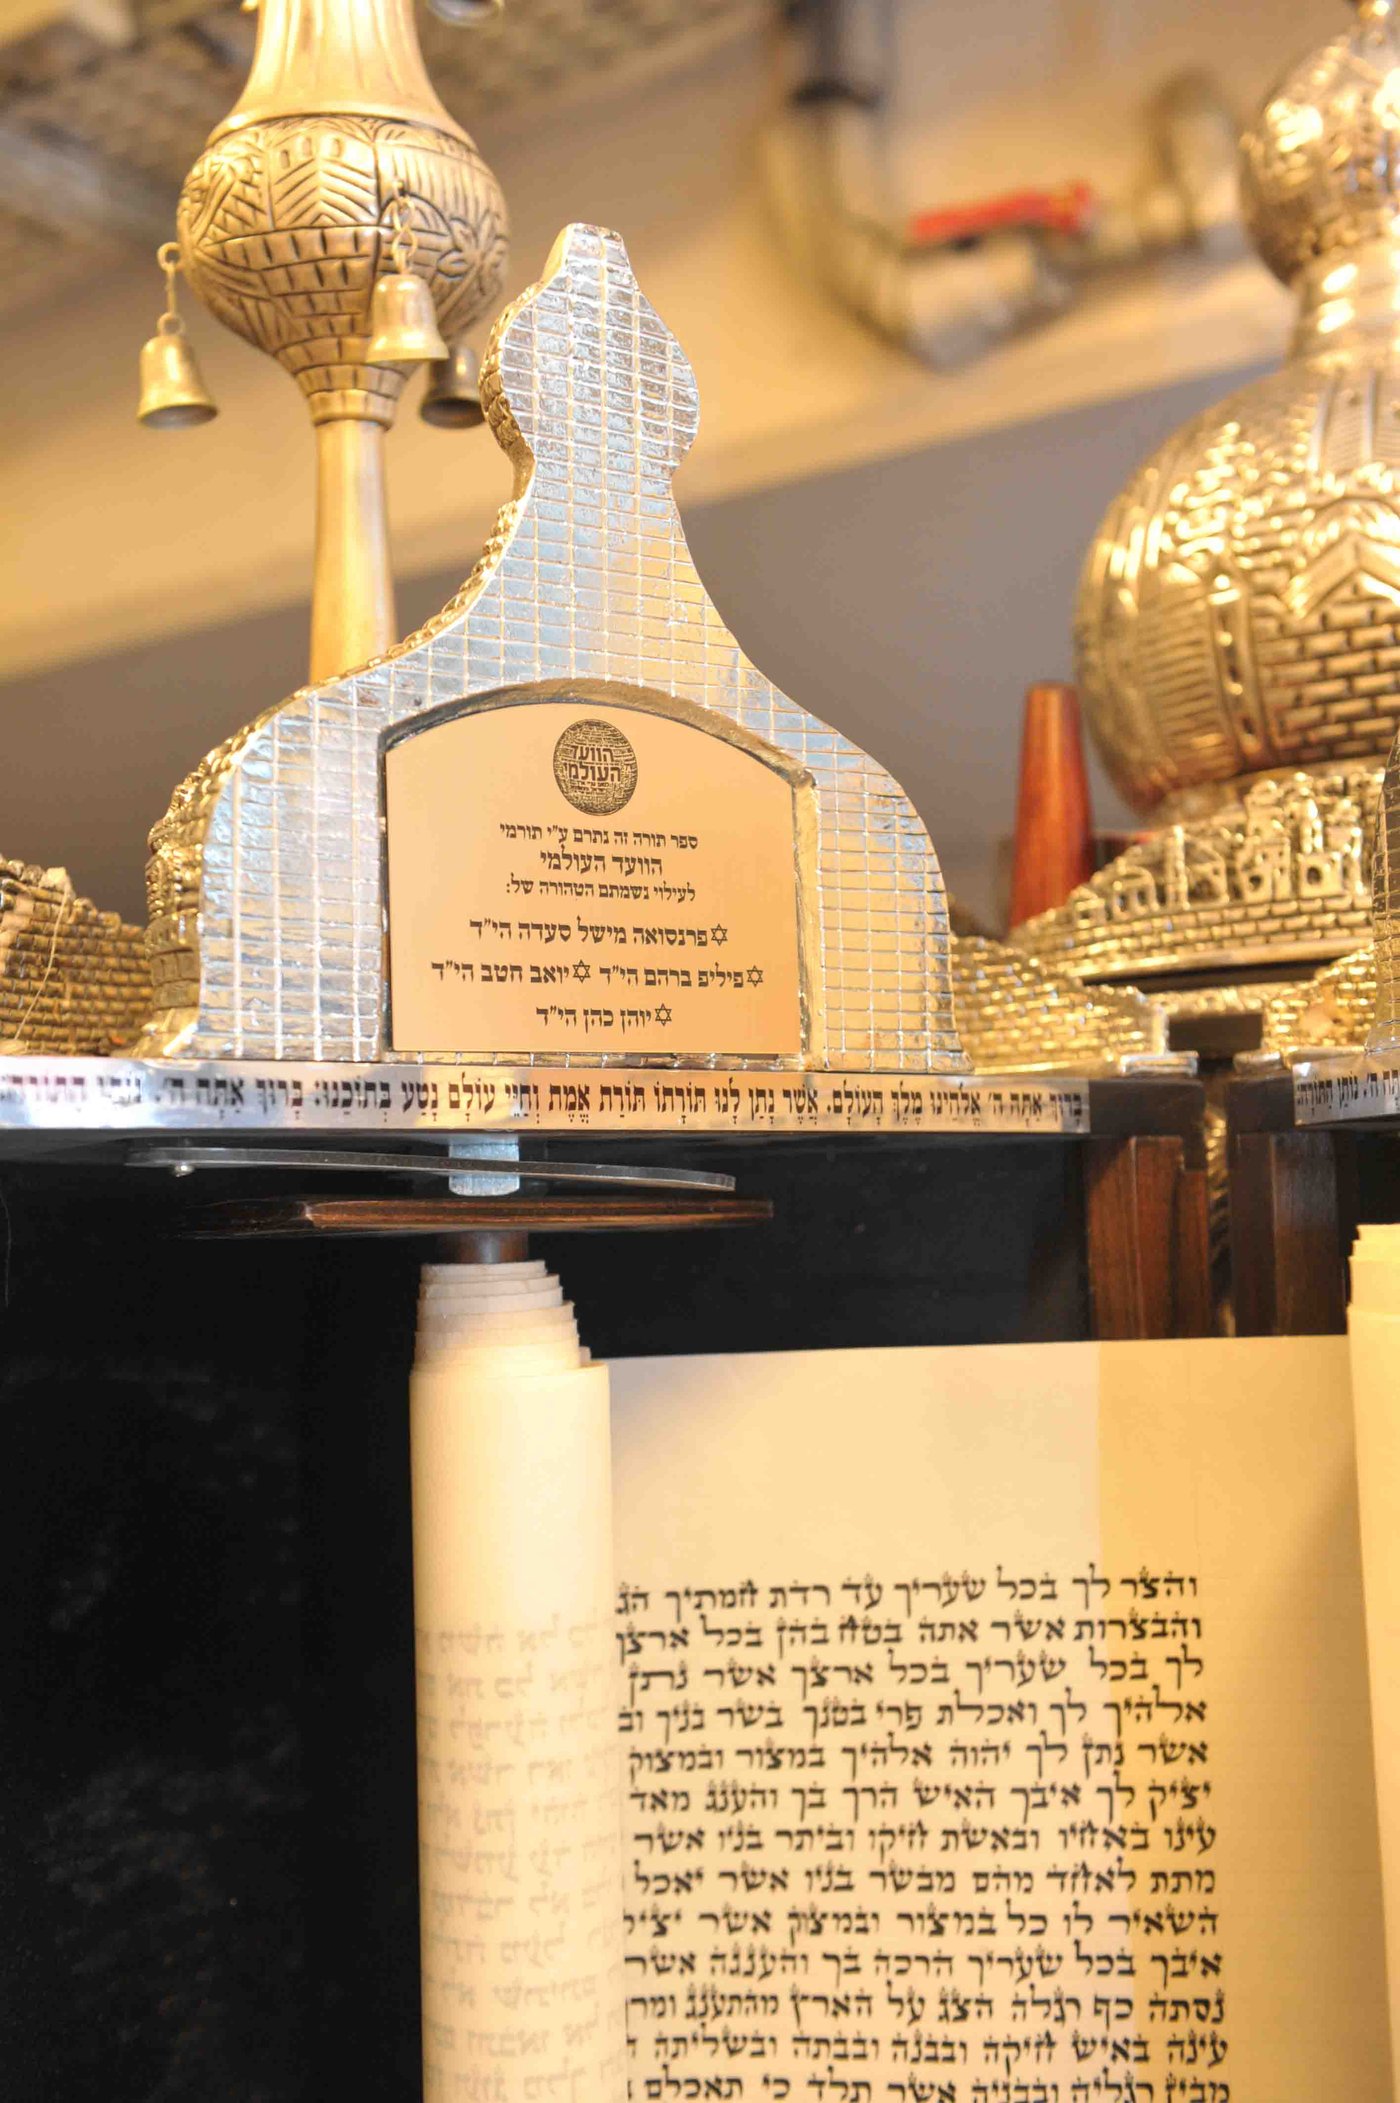 הוועד
העולמי
ספר תורה זה נתרם ע"י תורמי
הוועד העולמי
לעילוי נשמתם הטהורה של:
✡פרנסואה מישל סעדה הי"ד
✡פיליפ ברהם הי"ד ✡יואב חטב הי"ד
✡יוהן כהן הי"ד
בָּרוּךְ אַתָּה ה' אֱלֹהֵינוּ מֶלֶךְ הָעוֹלָם. אֲשֶׁר נָתַן לָנוּ תּוֹרָתוֹ תּוֹרַת אֱמֶת וְחַיֵּי עוֹלָם נָטַע בְּתוֹכֵנוּ: בָּרוּךְ אַתָּה ה'. נוֹתֵן הַתּוֹרָה:
אַתָּה ה'. נוֹתֵן הַתּוֹרָה:
והצר לך בכל שעריך עד רדת חמתיך הג
והבצרות אשר אתה בטח בהן בכל ארצך
לך בכל שעריך בכל ארצך אשר נתן
אלהיך לך ואכלת פרי בטנך בשר בניך וב
אשר נתן לך יהוה אלהיך במצור ובמצוק
יציק לך איבך האיש הרך בך והענג מאד
עינו באחיו ובאשת חיקו וביתר בניו אשר
מתת לאחד מהם מבשר בניו אשר יאכל
השאיר לו כל במצור ובמצוק אשר יציק
איבך בכל שעריך הרכה בך והענגה אשר
נסתה כף רגלה הצג על הארץ מהתענג ומרך
עינה באיש חיקה ובבנה ובבתה ובשליתה
מבין רגליה ובבניה אשר תלד כי תאכלם